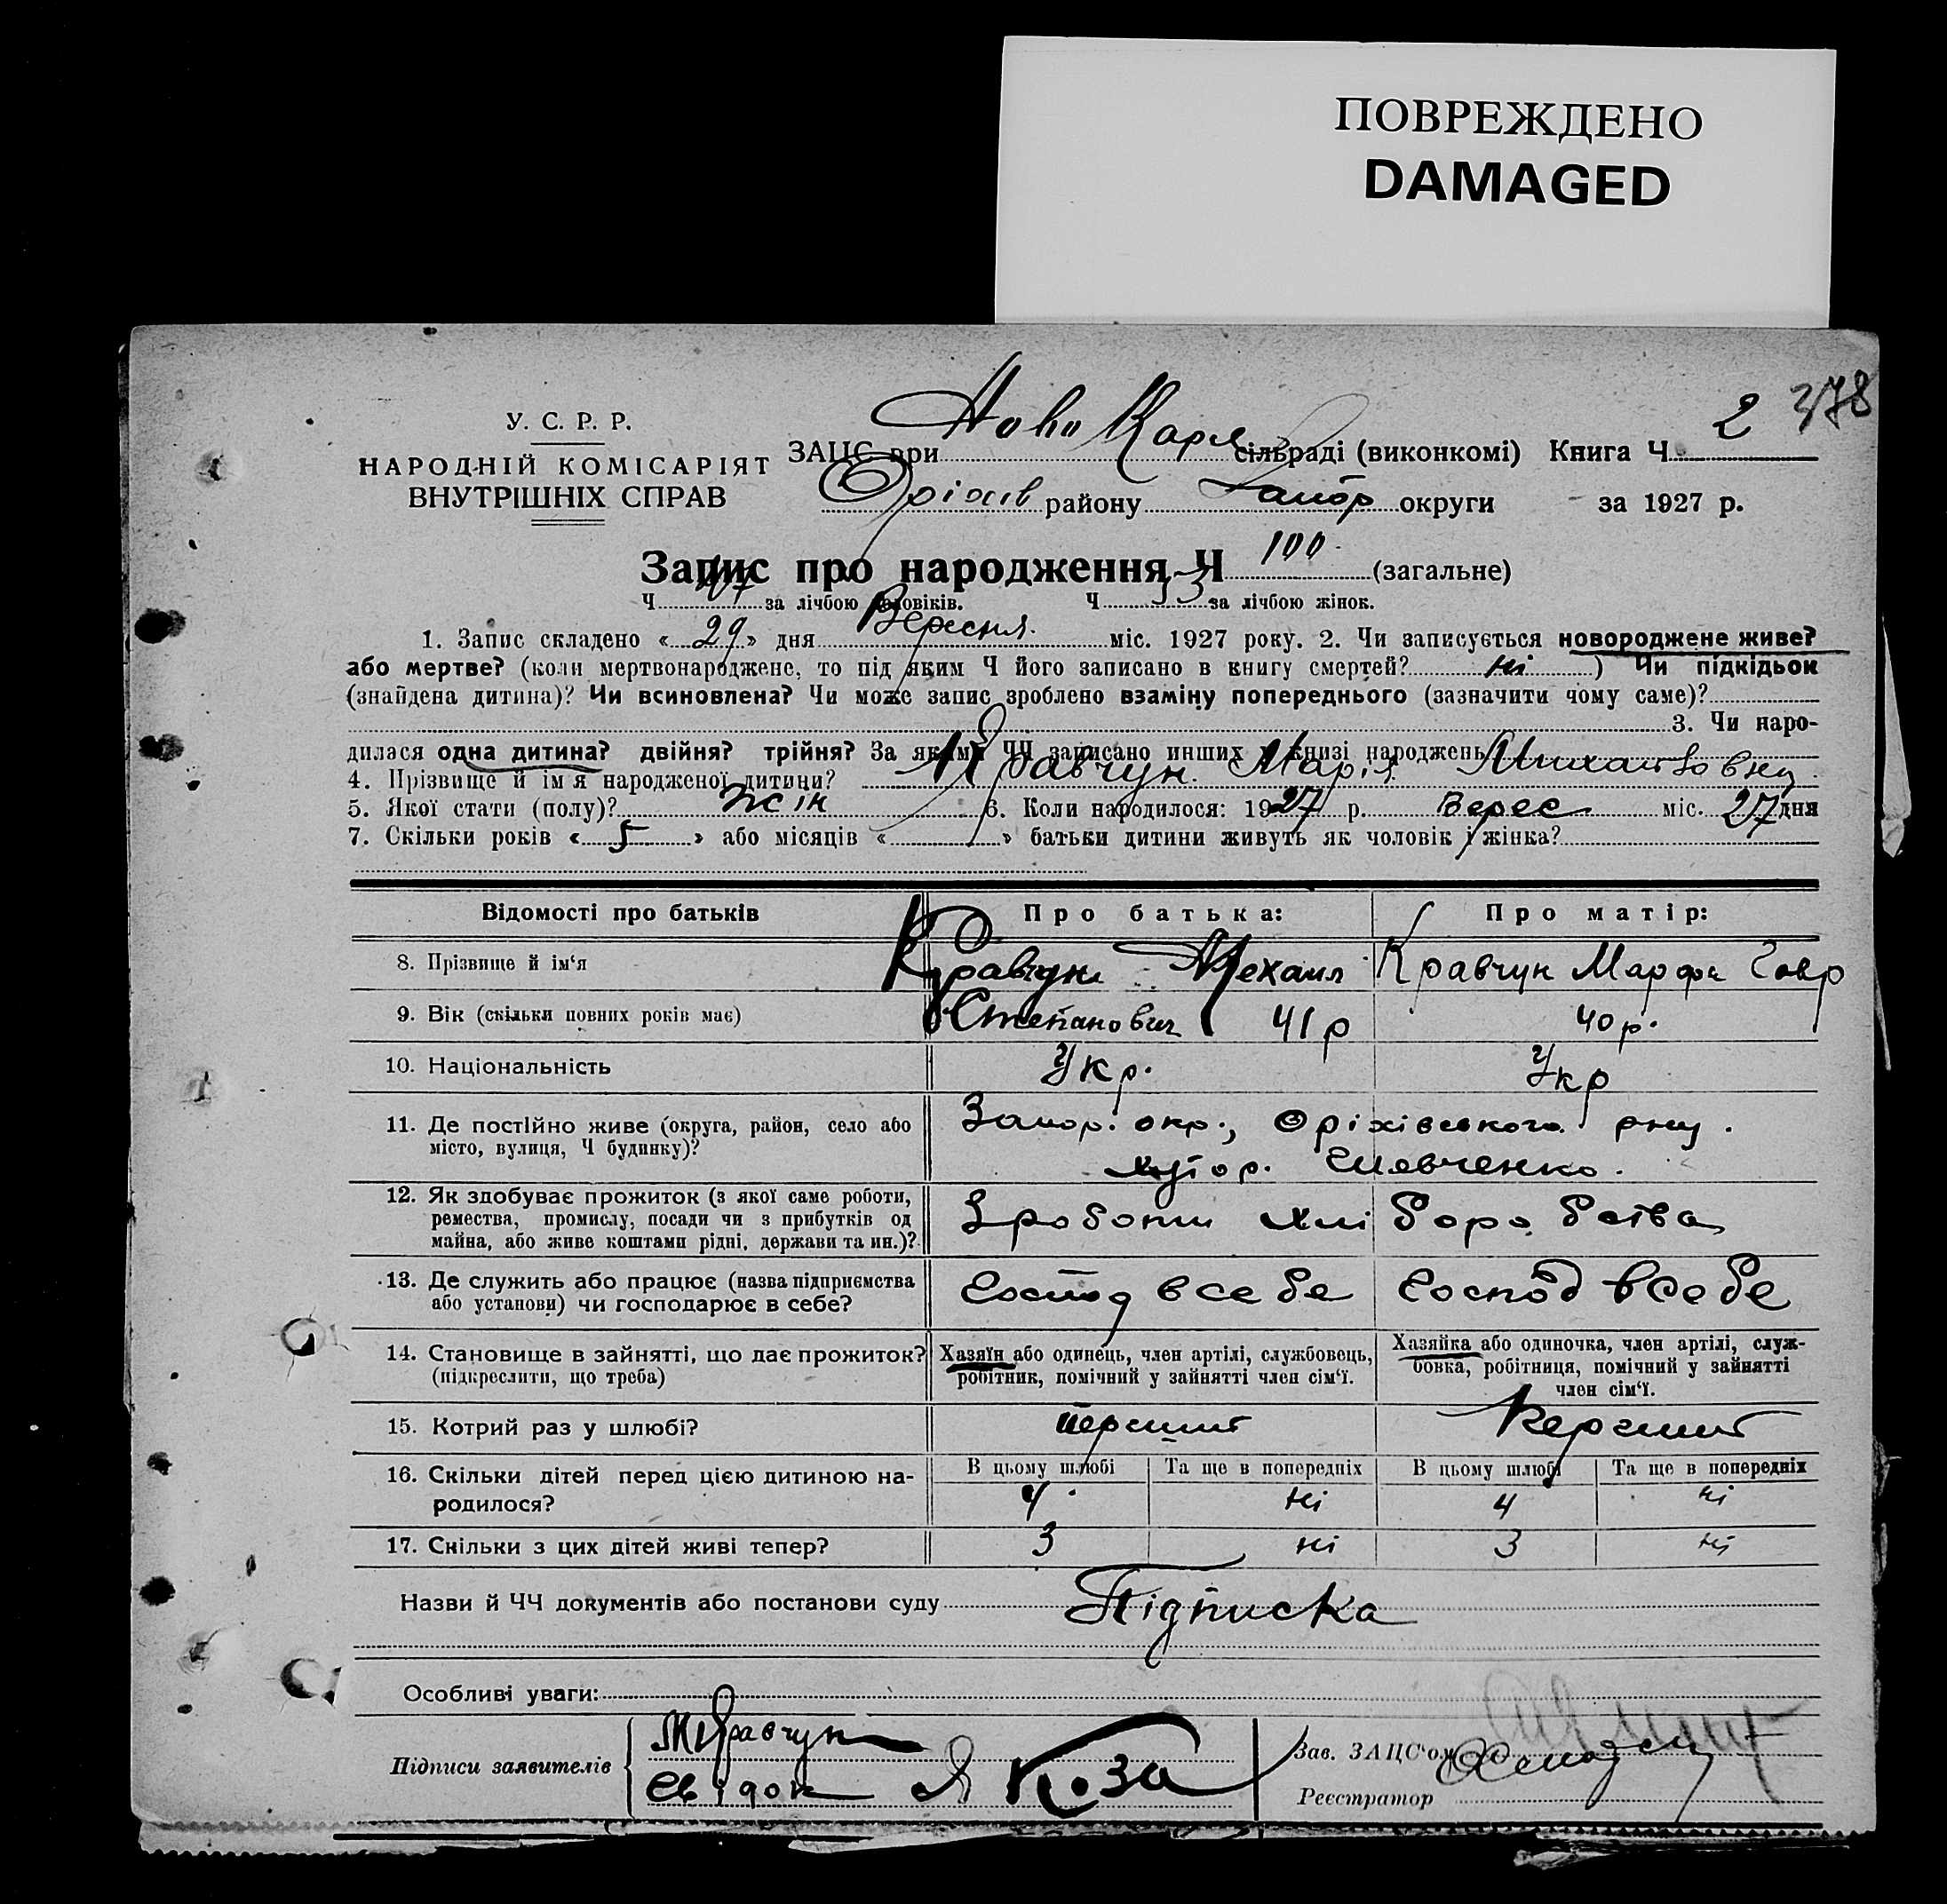 ПОВРЕЖДЕНО
DAMAGED
378
У. С. Р. Р.
НАРОДНІЙ КОМІСАРІЯТ
ВНУТРІШНІХ СПРАВ
ЗАЦС при Ново Карл сільраді (виконкомі) Книга Ч. 2
Оріхів району Запор округи за 1927 р.
Запис про народження Ч 100 (загальне)
Ч 47 за лічбою чоловіків. Ч 53 за лічбою жінок.
1. Запис складено « 29 » дня Вересня міс. 1927 року. 2. Чи записується новороджене живе?
або мертве? (коли мертвонароджене, то під яким Ч його записано в книгу смертей? ні ) Чи підкідьок
(знайдена дитина)? Чи всиновлена? Чи може запис зроблено взаміну попереднього (зазначити чому саме)?
3. Чи наро-
дилася одна дитина? двійня? трійня? За якими ЧЧ записано инших у книзі народжень
4. Прізвище й ім'я народженої дитини? Кравчун Марія Михайловну
5. Якої стати (полу)? жін 6. Коли народилося: 1927 р. Верес міс. 27 дня
7. Скільки років « 5 » або місяців « » батьки дитини живуть як чоловік і жінка?
Відомості про батьків Про батька: Про матір:
8. Прізвище й ім'я Кравчун Мехаил Кравчун Марфа Гавр
9. Вік (скільки повних років має) Степанович 41 р 40 р.
10. Національність Укр. Укр
11. Де постійно живе (округа, район, село або Запор. окр., Оріхівського рну.
місто, вулиця, Ч будинку)? хутор. Шевченко.
12. Як здобуває прожиток (з якої саме роботи,
ремества, промислу, посади чи з прибутків од Зроботи хліборобства
майна, або живе коштами рідні, держави та ин.)?
13. Де служить або працює (назва підприємства Господ в себе Господ в себе
або установи) чи господарює в себе?
14. Становище в зайнятті, що дає прожиток? Хазяїн або одинець, член артілі, службовець, Хазяйка або одиночка, член артілі, служ-
(підкреслити, що треба) робітник, помічний у зайнятті член сім'ї. бовка, робітниця, помічний у зайнятті
член сім'ї.
15. Котрий раз у шлюбі? перший Перший
16. Скільки дітей перед цією дитиною на- В цьому шлюбі Та ще в попередніх В цьому шлюбі Та ще в попередніх
родилося? 4 ні 4 ні
17. Скільки з цих дітей живі тепер? 3 ні 3 ні
Назви й ЧЧ документів або постанови суду Підписка
Особливі уваги:
Підписи заявителів МКравчун
Свідок Я Коза
Зав. ЗАЦС'ом
Реєстратор